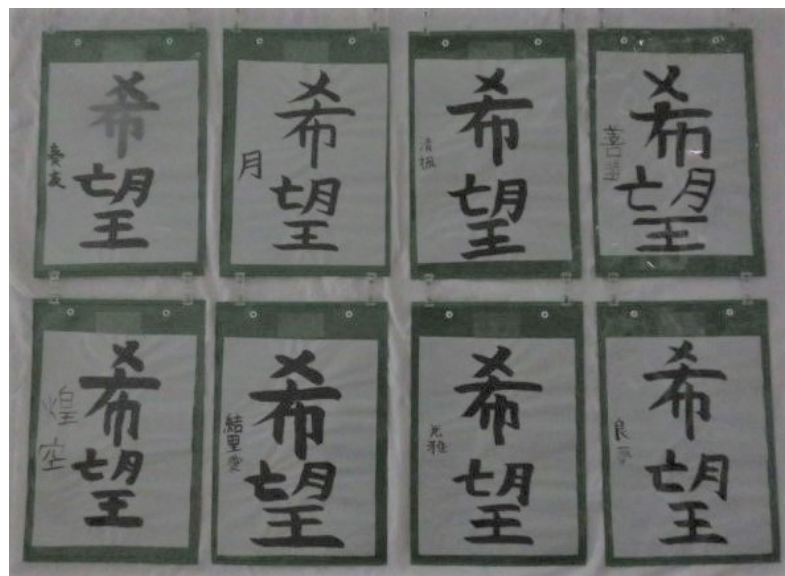 希望
希望
月
希望
希望
希望
煌空
希望
結里愛
希望
希望
良